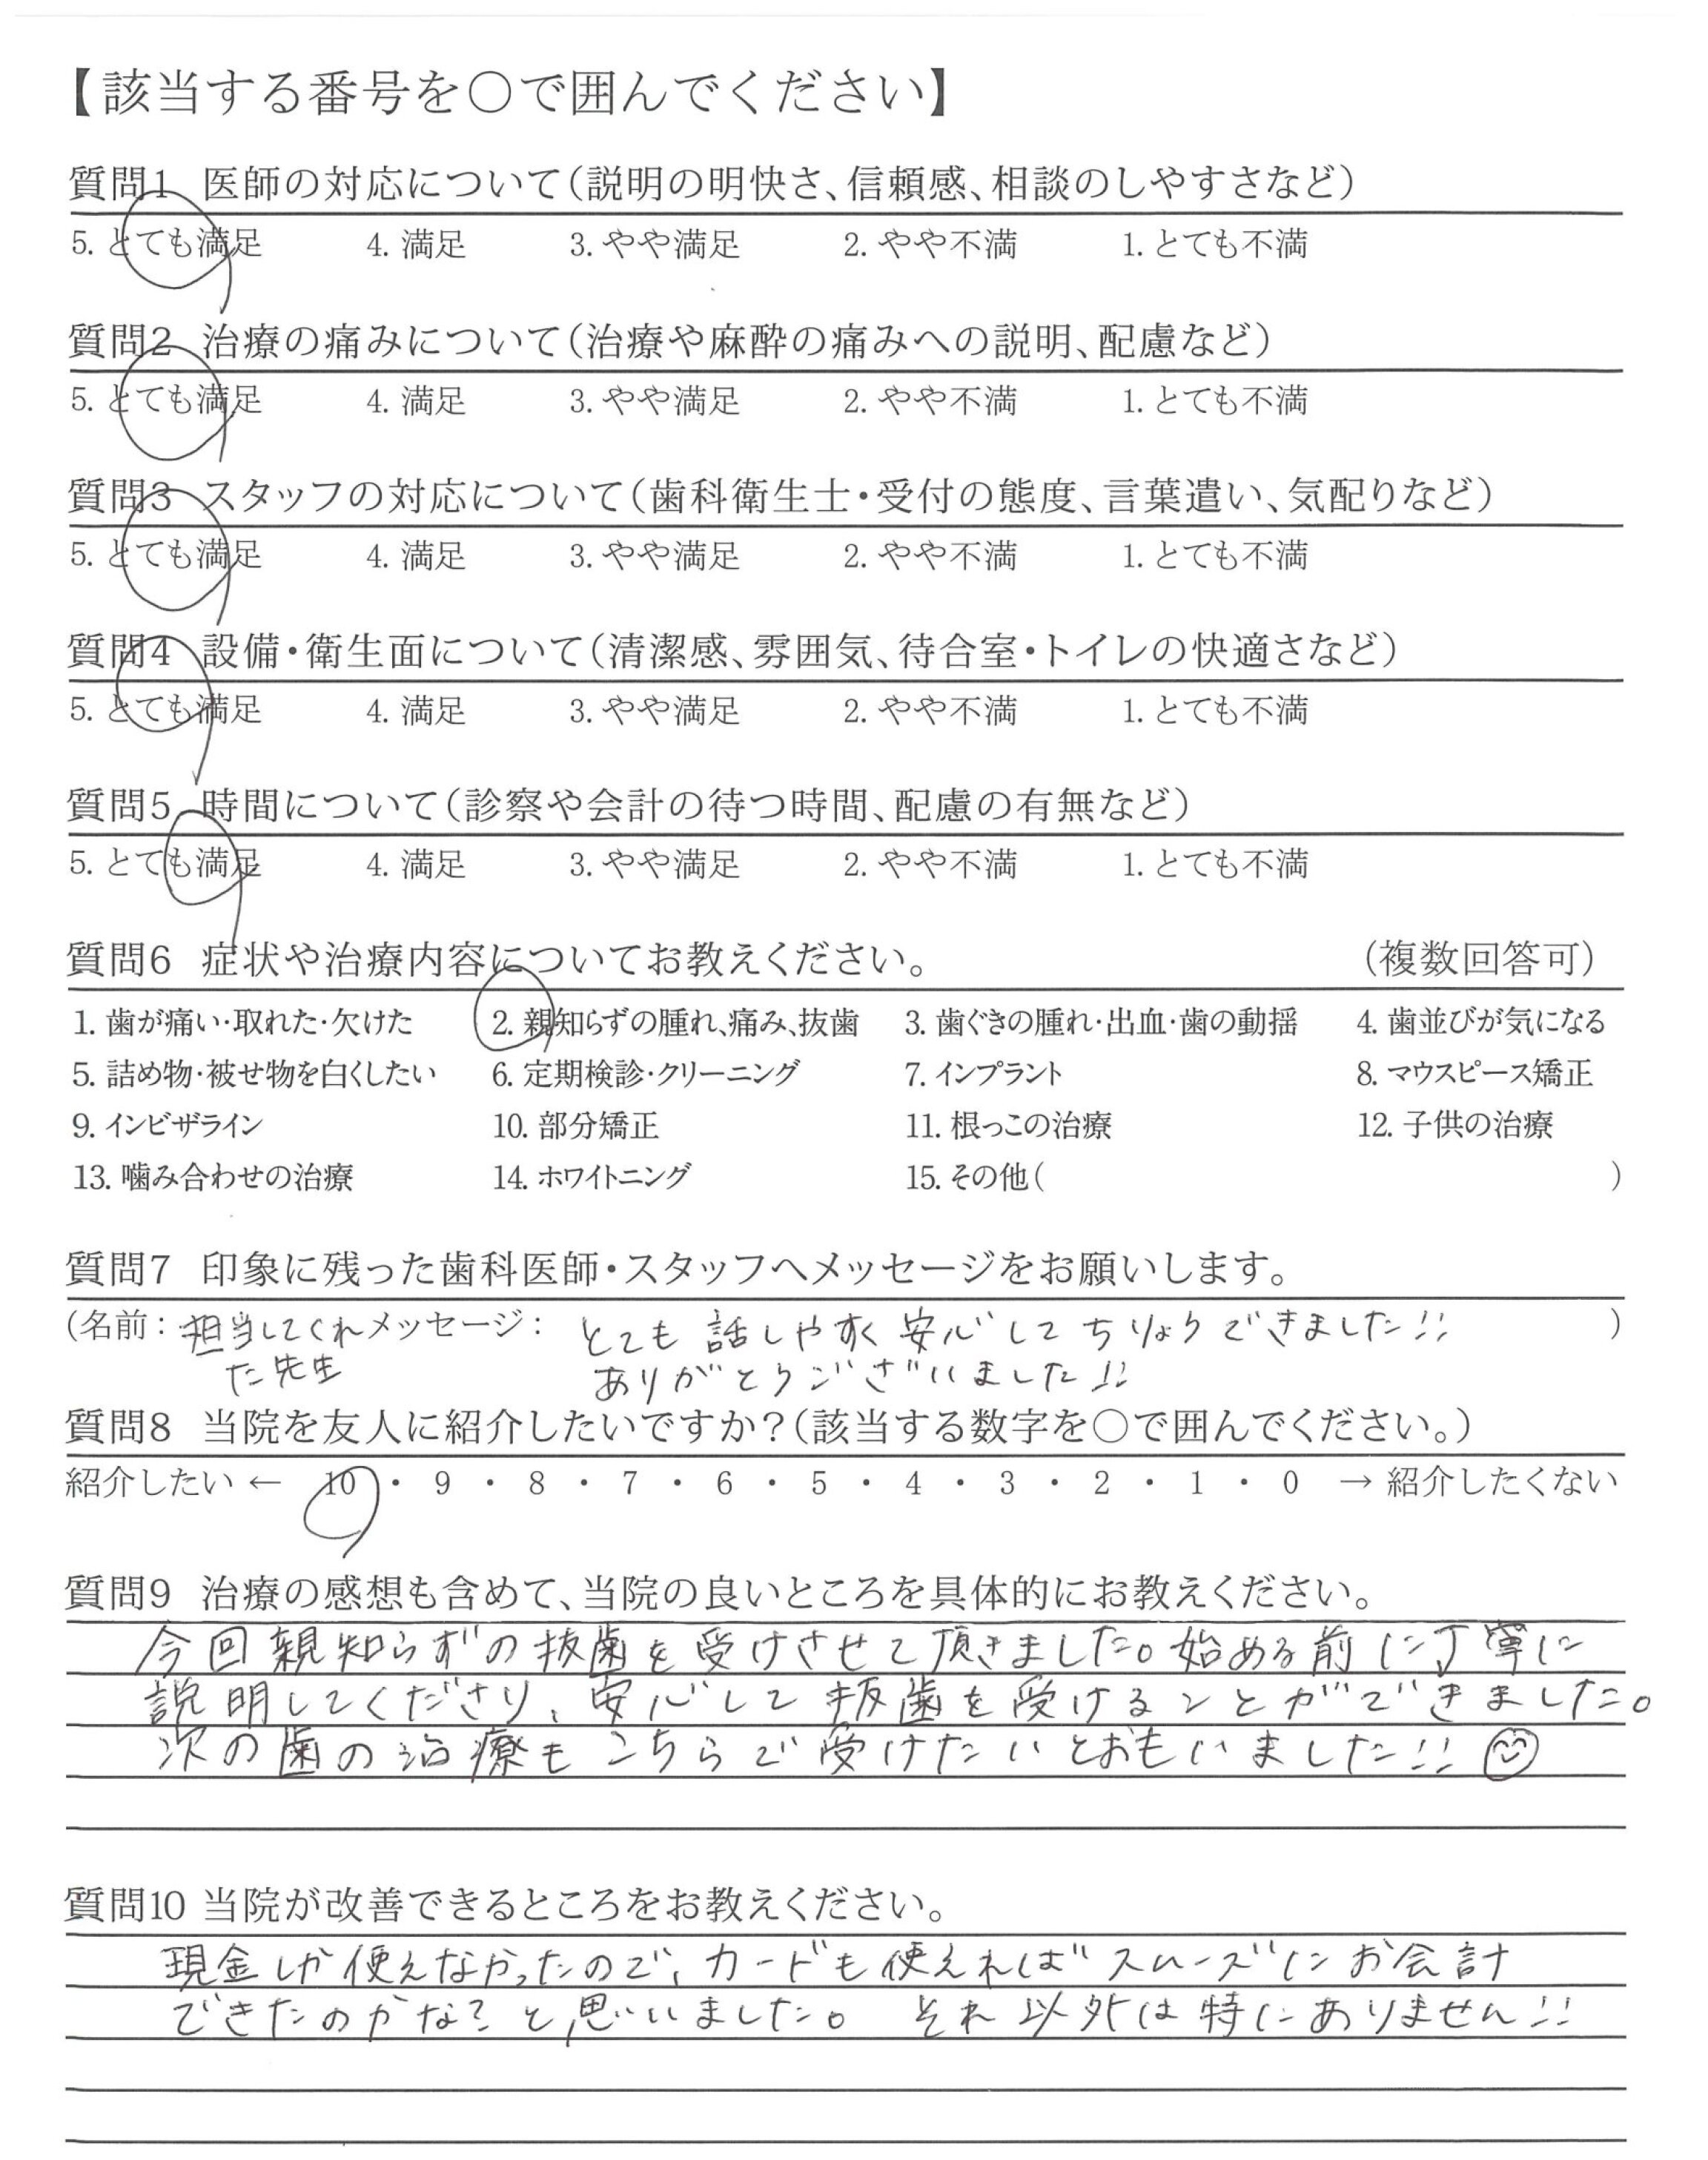 【該当する番号を○で囲んでください】
質問1 医師の対応について(説明の明快さ、信頼感、相談のしやすさなど)
5. とても満足 4. 満足 3. やや満足 2. やや不満 1. とても不満
質問2 治療の痛みについて(治療や麻酔の痛みへの説明、配慮など)
5. とても満足 4. 満足 3. やや満足 2. やや不満 1. とても不満
質問3 スタッフの対応について(歯科衛生士・受付の態度、言葉遣い、気配りなど)
5. とても満足 4. 満足 3. やや満足 2. やや不満 1. とても不満
質問4 設備・衛生面について(清潔感、雰囲気、待合室・トイレの快適さなど)
5. とても満足 4. 満足 3. やや満足 2. やや不満 1. とても不満
質問5 時間について(診察や会計の待つ時間、配慮の有無など)
5. とても満足 4. 満足 3. やや満足 2. やや不満 1. とても不満
質問6 症状や治療内容についてお教えください。 (複数回答可)
1. 歯が痛い・取れた・欠けた 2. 親知らずの腫れ、痛み、抜歯 3. 歯ぐきの腫れ・出血・歯の動揺 4. 歯並びが気になる
5. 詰め物・被せ物を白くしたい 6. 定期検診・クリーニング 7. インプラント 8. マウスピース矯正
9. インビザライン 10. 部分矯正 11. 根っこの治療 12. 子供の治療
13. 噛み合わせの治療 14. ホワイトニング 15. その他( )
質問7 印象に残った歯科医師・スタッフへメッセージをお願いします。
(名前: 担当してくれ メッセージ: とても話しやすく安心してちりょうできました!! )
た先生 ありがとうございました!!
質問8 当院を友人に紹介したいですか?(該当する数字を○で囲んでください。)
紹介したい ← 10 ・ 9 ・ 8 ・ 7 ・ 6 ・ 5 ・ 4 ・ 3 ・ 2 ・ 1 ・ 0 → 紹介したくない
質問9 治療の感想も含めて、当院の良いところを具体的にお教えください。
今回親知らずの抜歯を受けさせて頂きました。始める前に丁寧に
説明してくださり、安心して抜歯を受けることができました。
次の歯の治療もこちらで受けたいとおもいました!!
質問10 当院が改善できるところをお教えください。
現金しか使えなかったので、カードも使えればスムーズにお会計
できたのかな?と思いました。 それ以外は特にありません!!